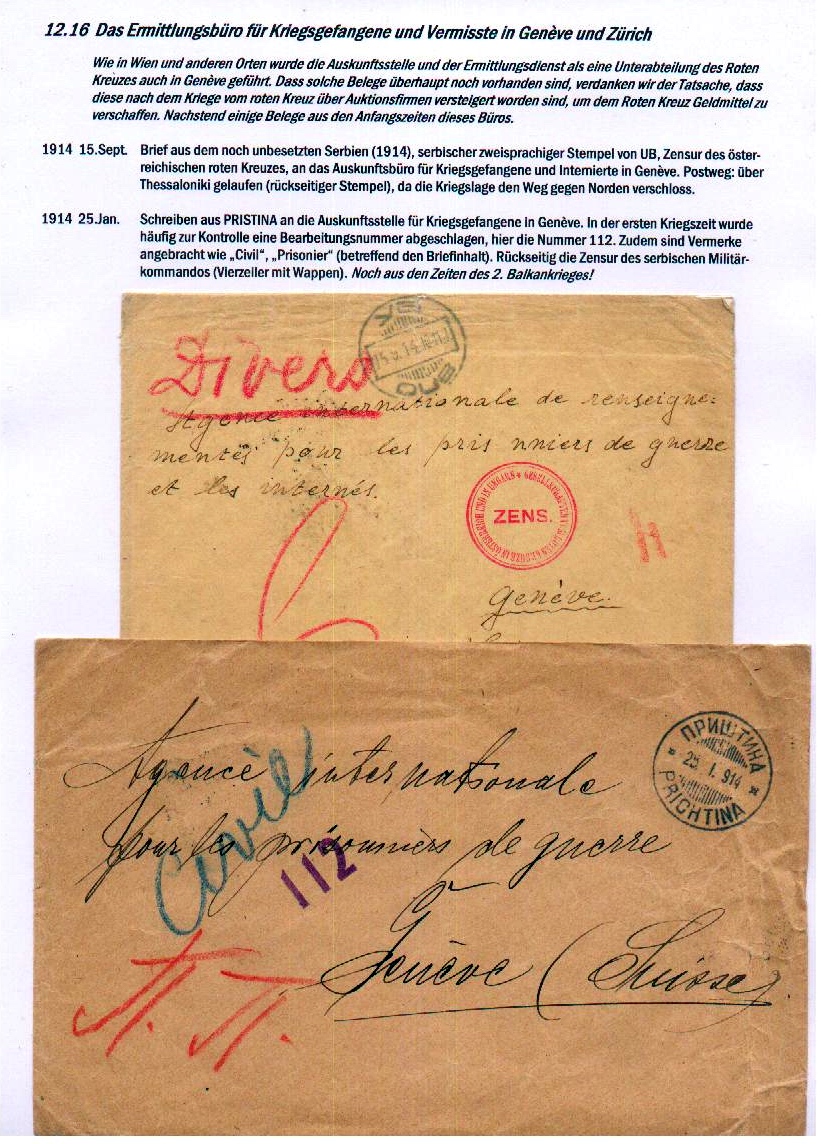 12.16 Das Ermittlungsbüro für Kriegsgefangene und Vermisste in Genève und Zürich
Wie in Wien und anderen Orten wurde die Auskunftsstelle und der Ermittlungsdienst als eine Unterabteilung des Roten
Kreuzes auch in Genève geführt. Dass solche Belege überhaupt noch vorhanden sind, verdanken wir der Tatsache, dass
diese nach dem Kriege vom roten Kreuz über Auktionsfirmen versteigert worden sind, um dem Roten Kreuz Geldmittel zu
verschaffen. Nachstend einige Belege aus den Anfangszeiten dieses Büros.
1914 15.Sept. Brief aus dem noch unbesetzten Serbien (1914), serbischer zweisprachiger Stempel von UB, Zensur des öster-
reichischen roten Kreuzes, an das Auskunftsbüro für Kriegsgefangene und Internierte in Genève. Postweg: über
Thessaloniki gelaufen (rückseitiger Stempel), da die Kriegslage den Weg gegen Norden verschloss.
1914 25.Jan. Schreiben aus PRISTINA an die Auskunftsstelle für Kriegsgefangene in Genève. In der ersten Kriegszeit wurde
häufig zur Kontrolle eine Bearbeitungsnummer abgeschlagen, hier die Nummer 112. Zudem sind Vermerke
angebracht wie „Civil", „Prisonier" (betreffend den Briefinhalt). Rückseitig die Zensur des serbischen Militär-
kommandos (Vierzeiler mit Wappen). Noch aus den Zeiten des 2. Balkankrieges!
Divers
Agence internationale de renseigne=
mentes pour les pris nniers de guerre
et les internés.
ZENS.
Genève
ПРИШТИНА
25 I. 914
PRICHTINA
Agence internationale
pour les prisonniers de guerre
Civil
112
Genève (Suisse)